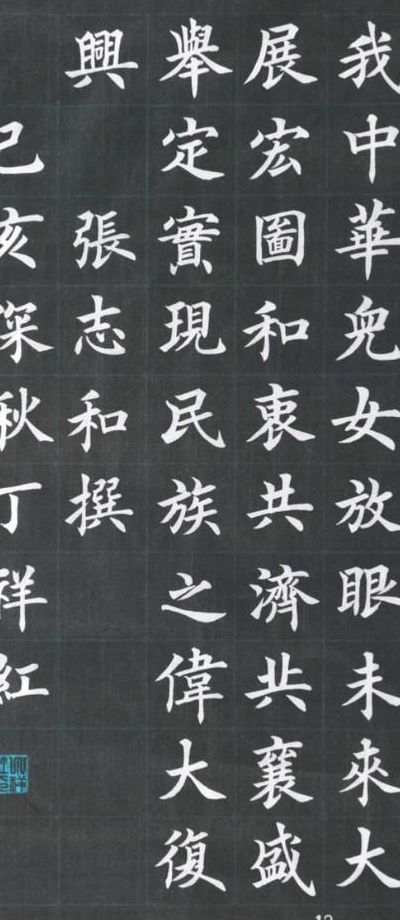 我中華兒女放眼未來大
展宏圖和衷共濟共襄盛
舉定實現民族之偉大復
興 張志和撰
己亥深秋丁祥紅